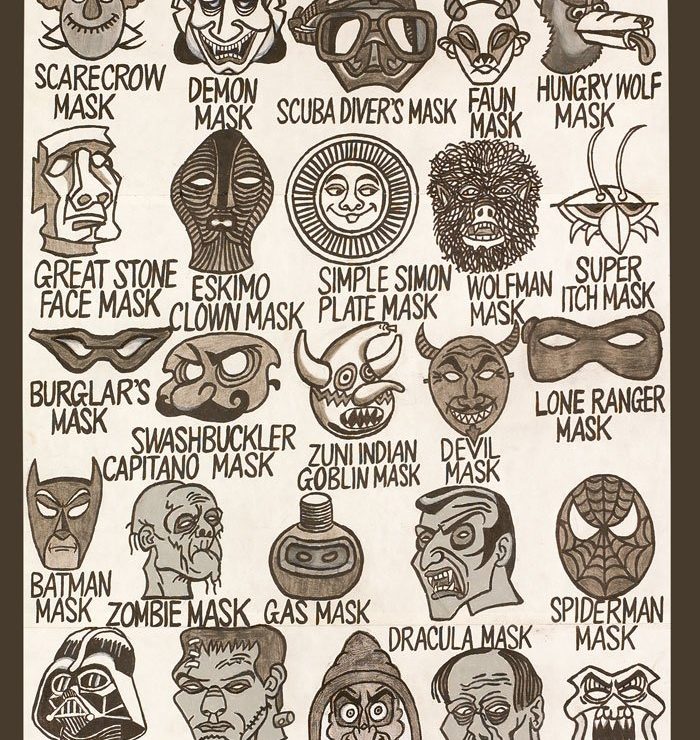 SCARECROW
MASK
DEMON
MASK
SCUBA DIVER'S MASK
FAUN
MASK
HUNGRY WOLF
MASK
GREAT STONE
FACE MASK
ESKIMO
CLOWN MASK
SIMPLE SIMON
PLATE MASK
WOLFMAN
MASK
SUPER
ITCH MASK
BURGLAR'S
MASK
SWASHBUCKLER
CAPITANO MASK
ZUNI INDIAN
GOBLIN MASK
DEVIL
MASK
LONE RANGER
MASK
BATMAN
MASK
ZOMBIE MASK
GAS MASK
DRACULA MASK
SPIDERMAN
MASK